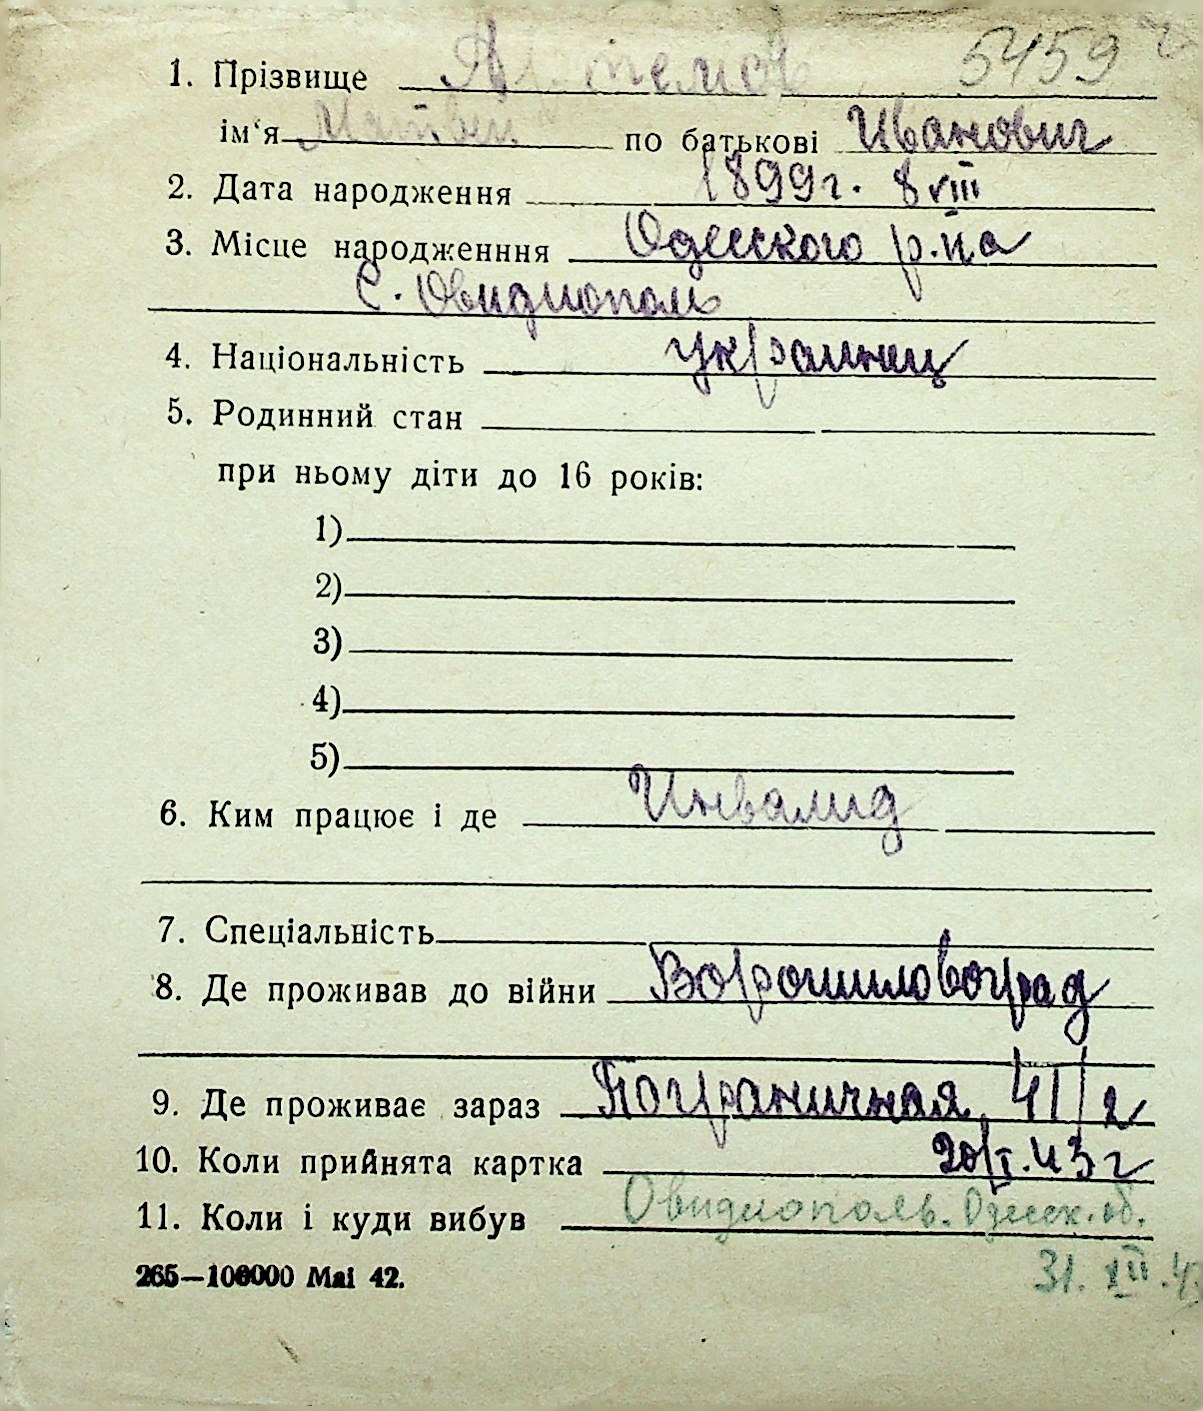 5459
1. Прізвище Артемов
ім‘я Матвей по батькові Иванович
2. Дата народження 1899г. 8 VIII
3. Місце народженння Одесского р.на
с. Овидиополь
4. Національність украинец
5. Родинний стан
при ньому діти до 16 років:
1)
2)
3)
4)
5)
6. Ким працює і де Инвалид
7. Спеціальність
8. Де проживав до війни Ворошиловоград
9. Де проживає зараз Пограничная 41/2
10. Коли прийнята картка 20/I.43г
11. Коли і куди вибув Овидиополь. Одесск. об.
265—100000 Mai 42. 31. XII.